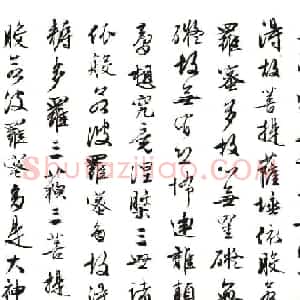 得故菩提薩埵依般若
羅蜜多故心無罣礙無
礙故無有恐怖遠離顛
夢想究竟涅槃三世諸
依般若波羅蜜多故得
耨多羅三藐三菩提
般若波羅蜜多是大神
Shufaziliao.com